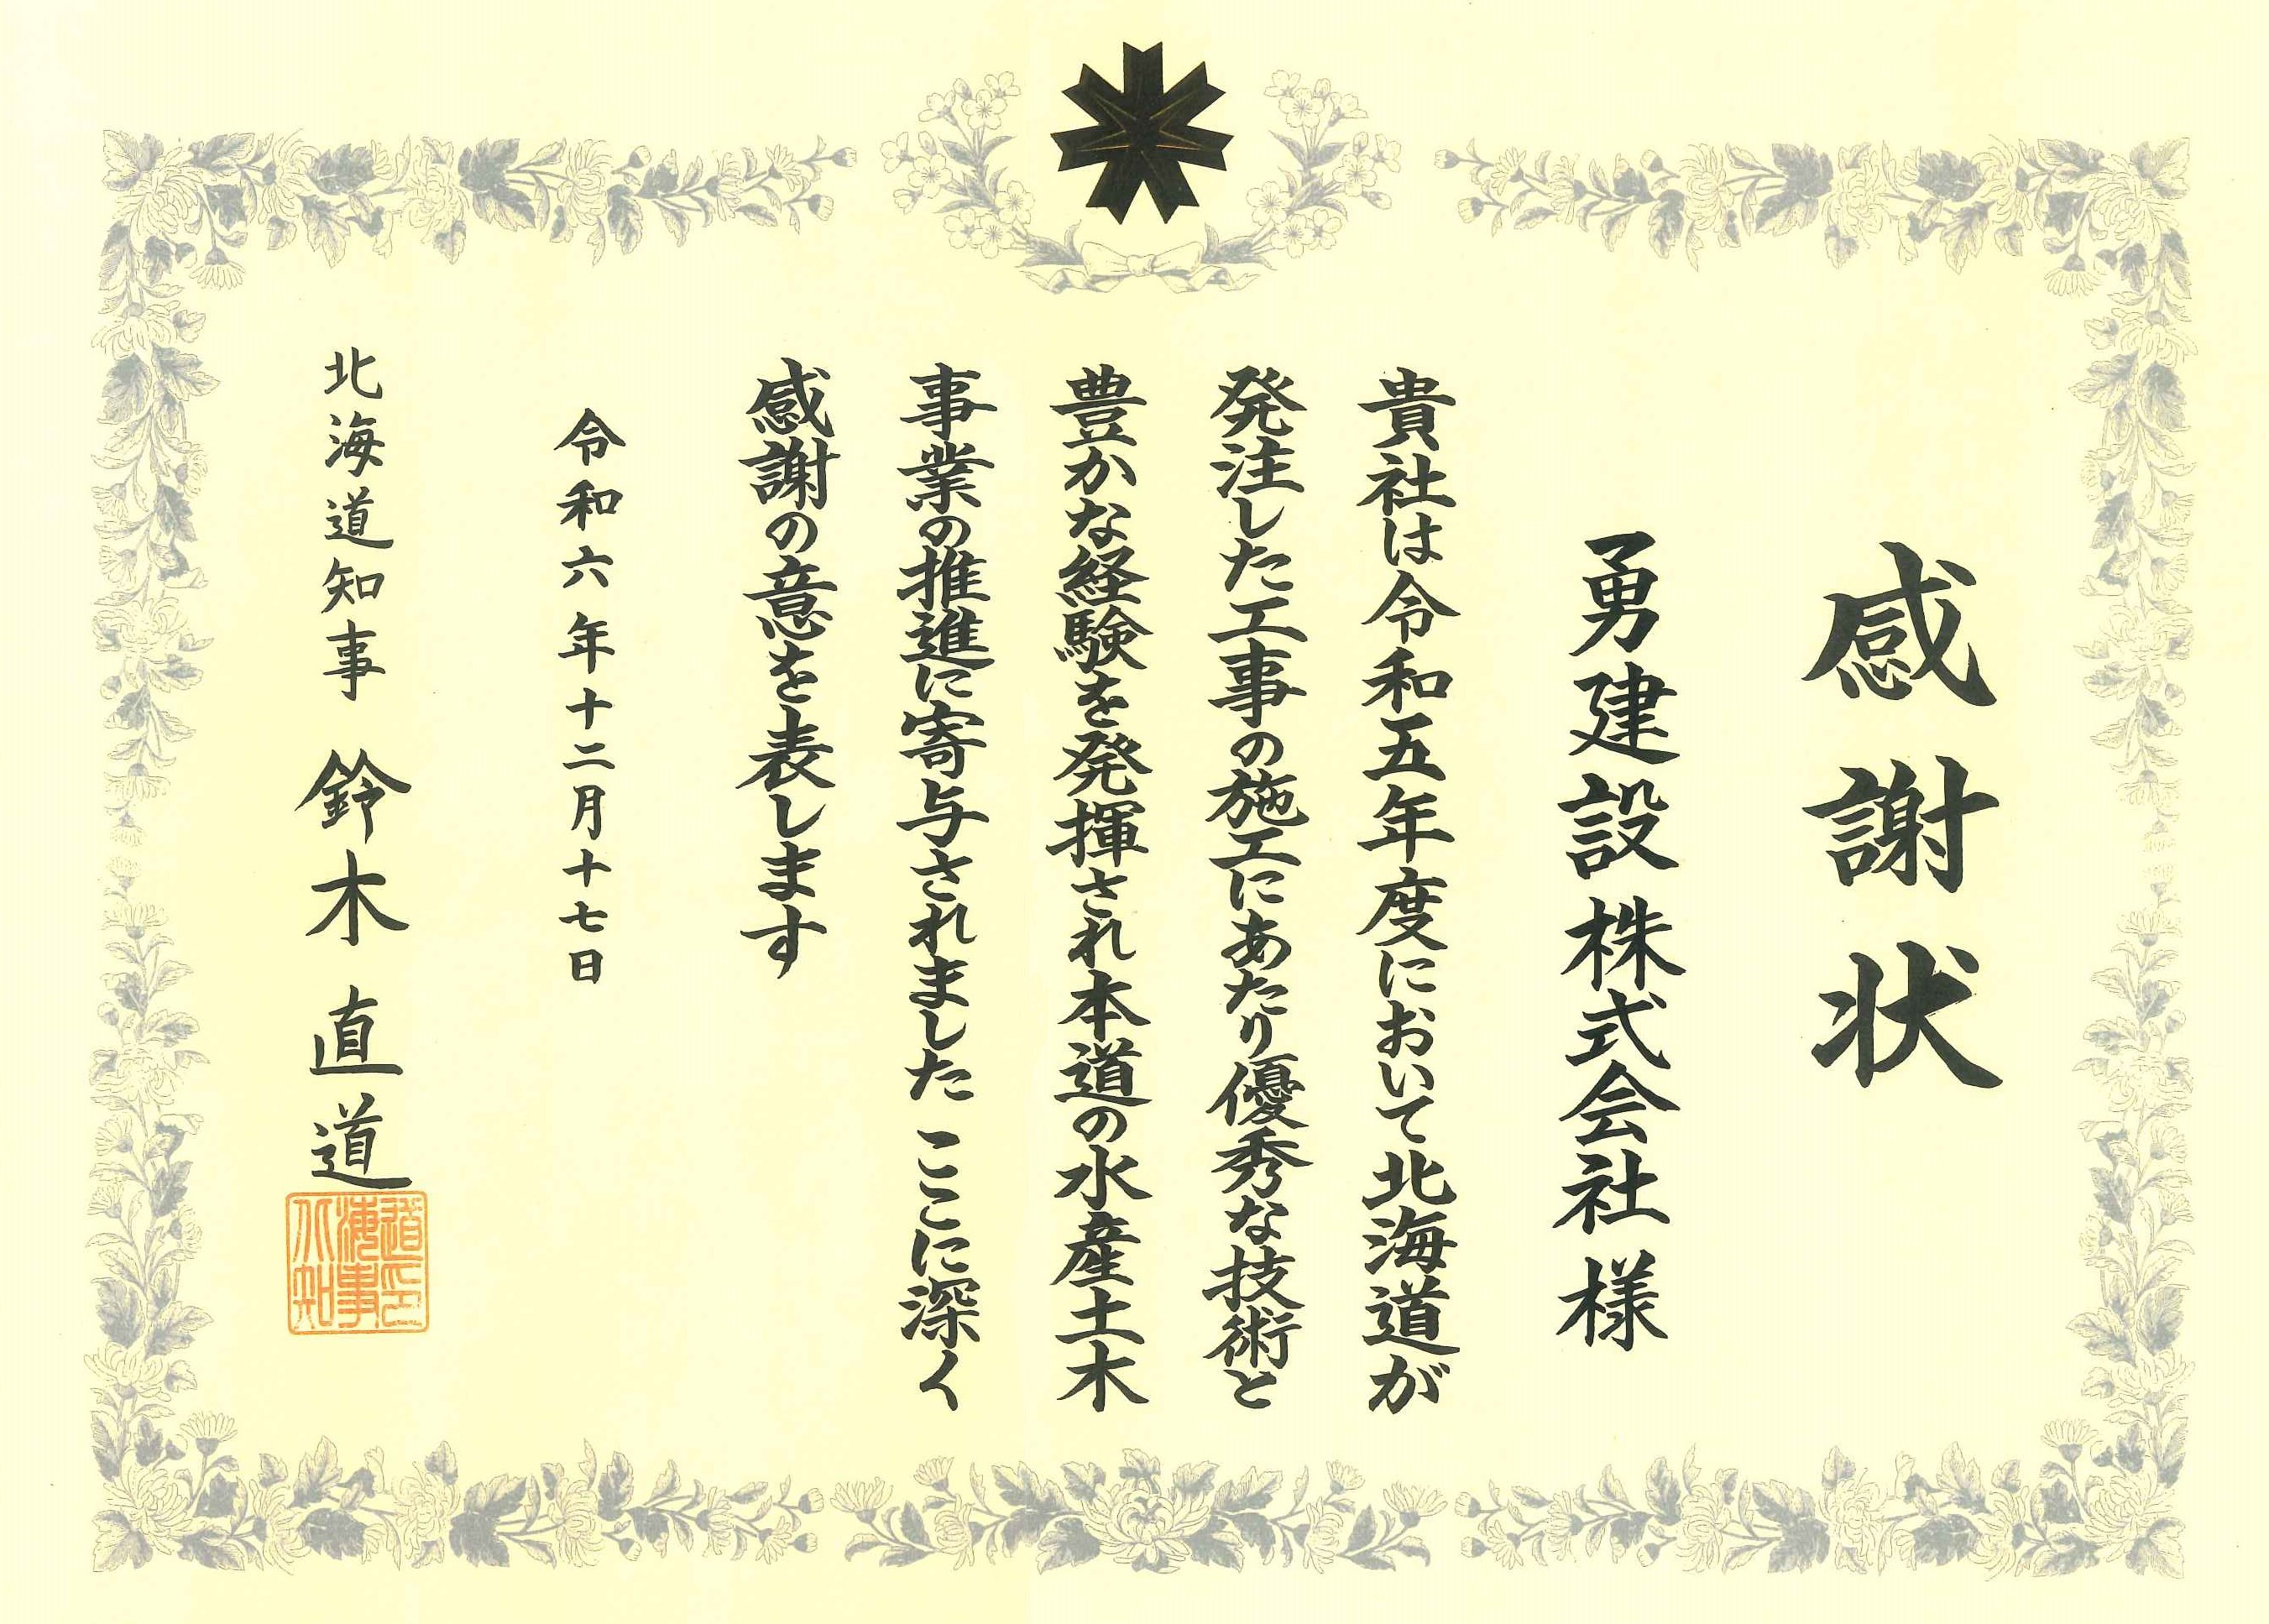 感謝状
勇建設株式会社様
貴社は令和五年度において北海道が
発注した工事の施工にあたり優秀な技術と
豊かな経験を発揮され本道の水産土木
事業の推進に寄与されました ここに深く
感謝の意を表します
令和六年十二月十七日
北海道知事 鈴木直道
道之印
海事
北知